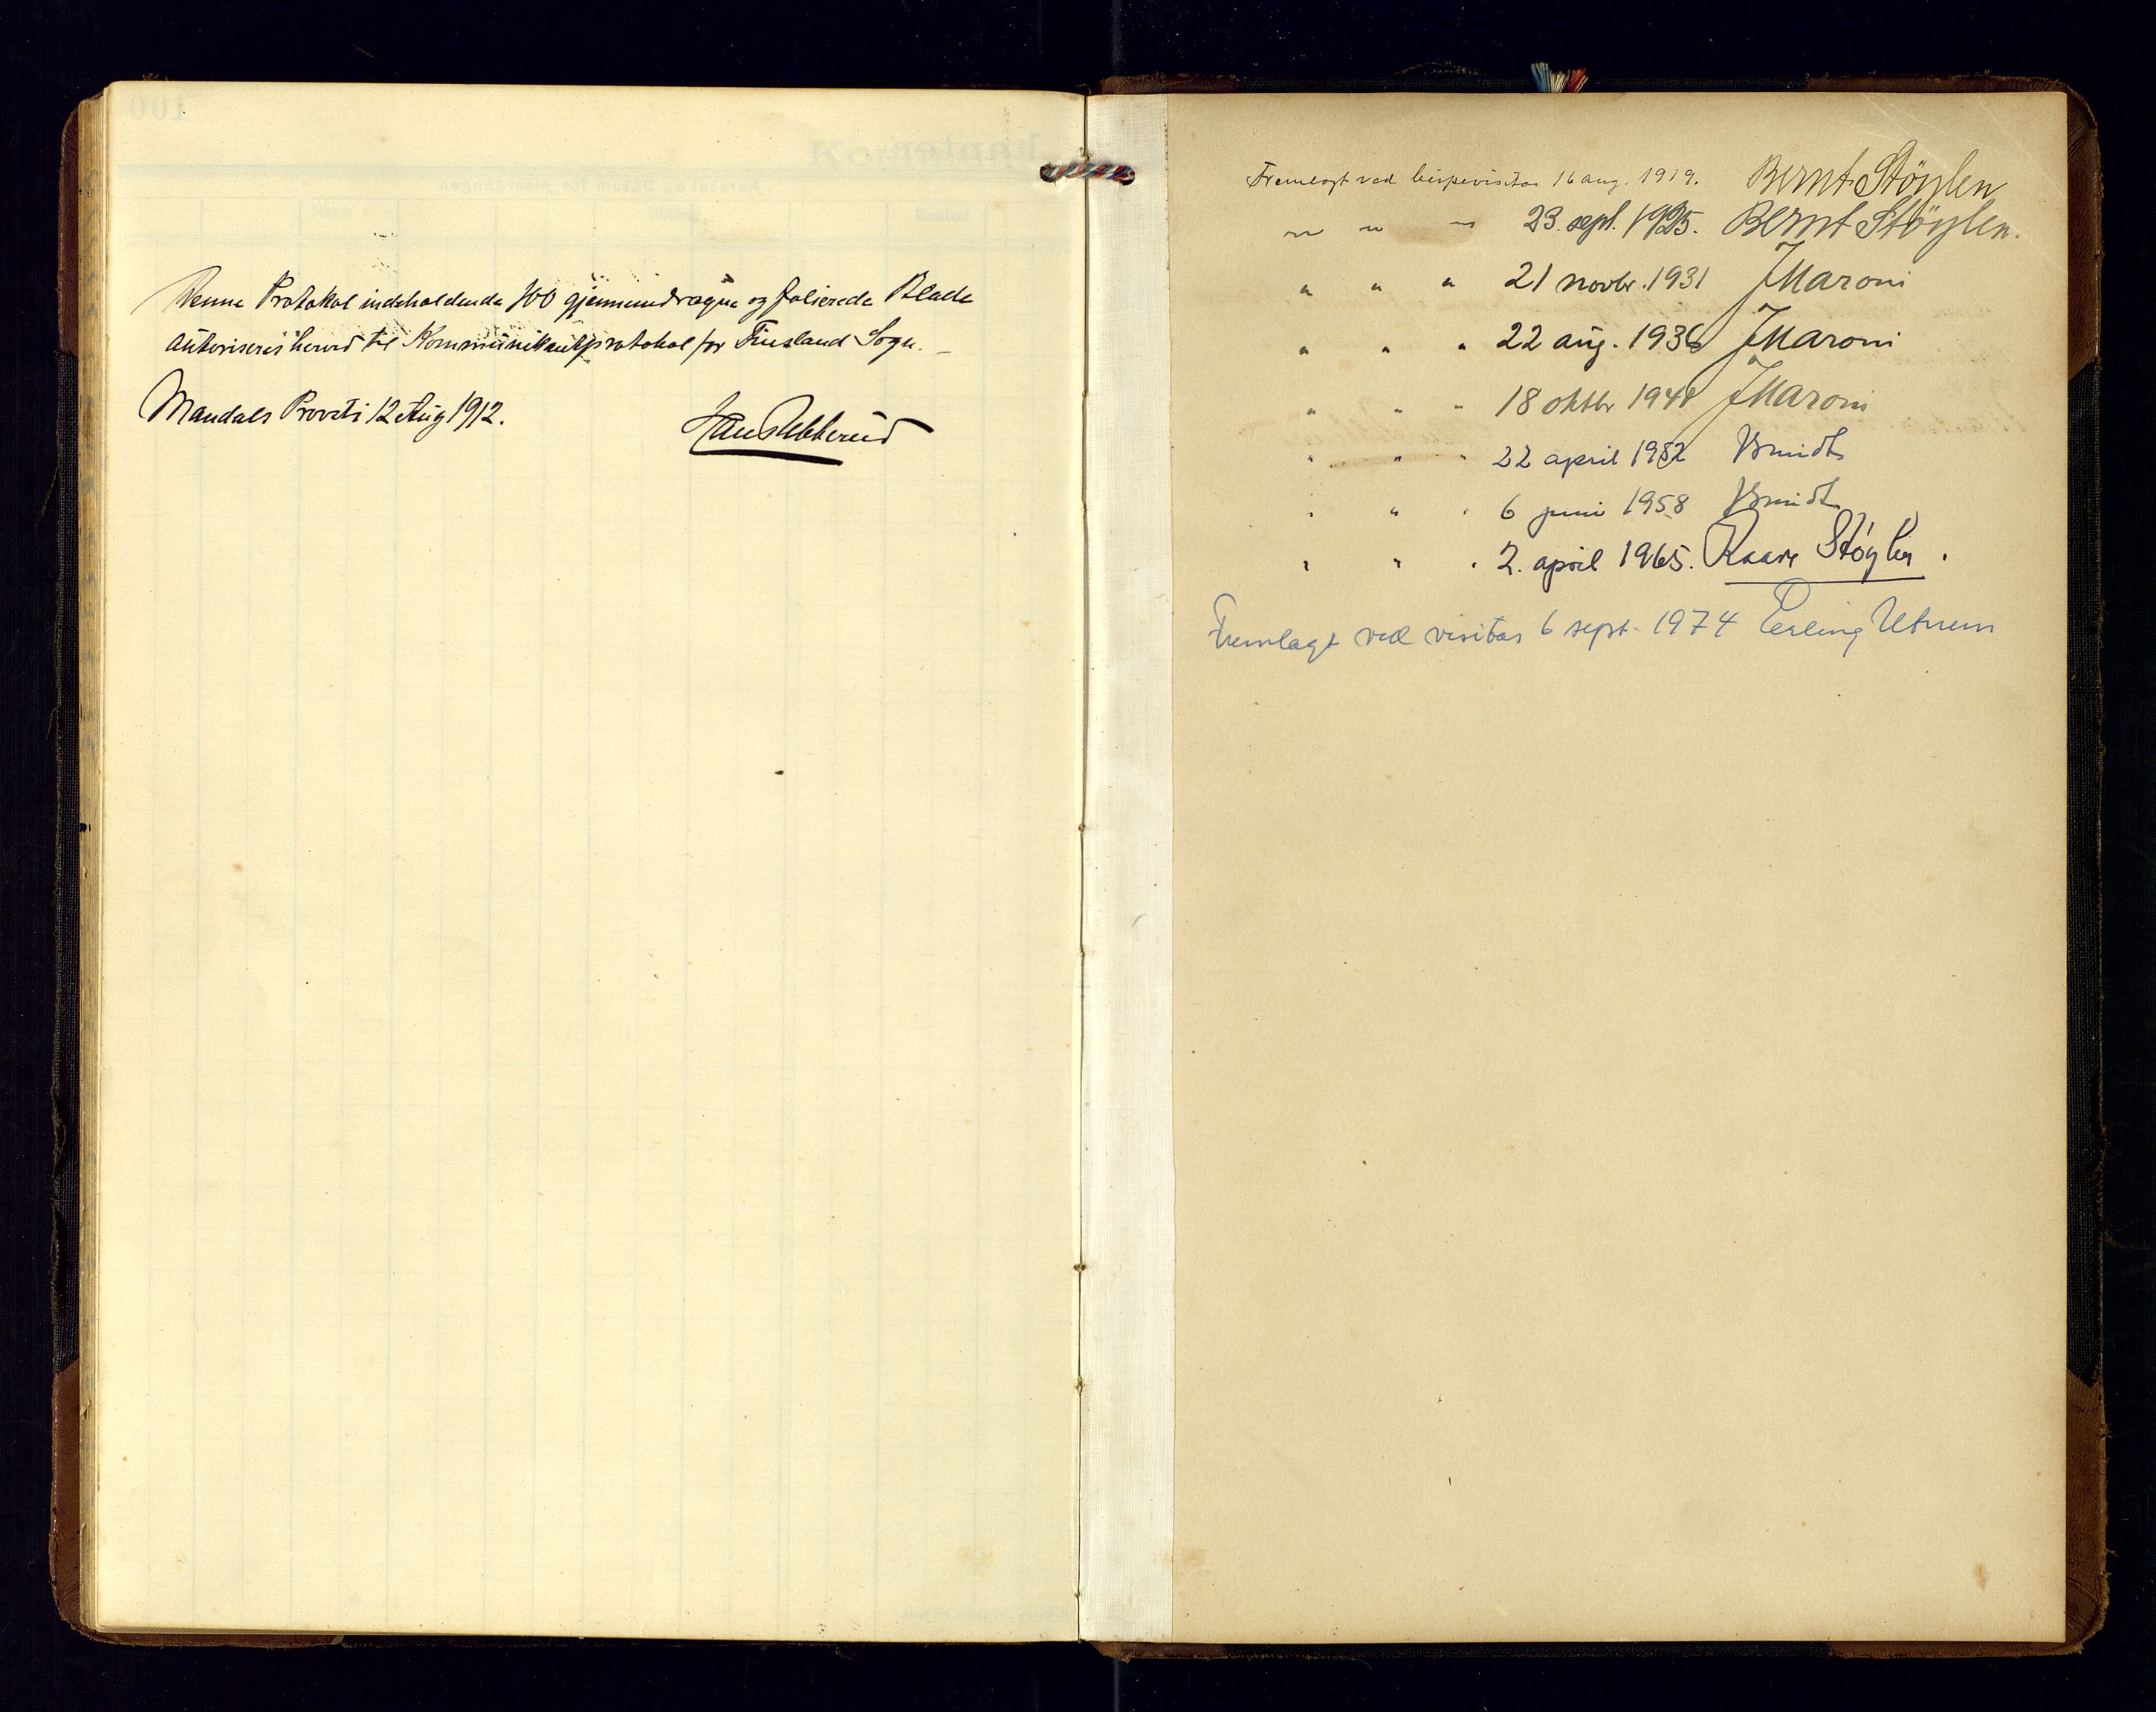 Denne Protokol indeholdende 100 gjennemdragne og folierede Blade
autoriseres herved til Kommunikantprotokol for Finsland Sogn.
Mandals Provsti 12 Aug 1912.
Fremlagt ved bispevisitas 16 aug. 1919. Bernt Støylen
" " " 23. sept. 1925. Bernt Støylen.
" " " 21 novbr. 1931 J Maroni
" " " 22 aug. 1936 J Maroni
" " " 18 oktbr J Maroni
" " " 22 april 1952 Smidt
" " " 6 juni 1958 Smidt
" " " 2. april 1965. Kaare Støylen.
Fremlagt ved visitas 6 sept. 1974 Erling Utnem